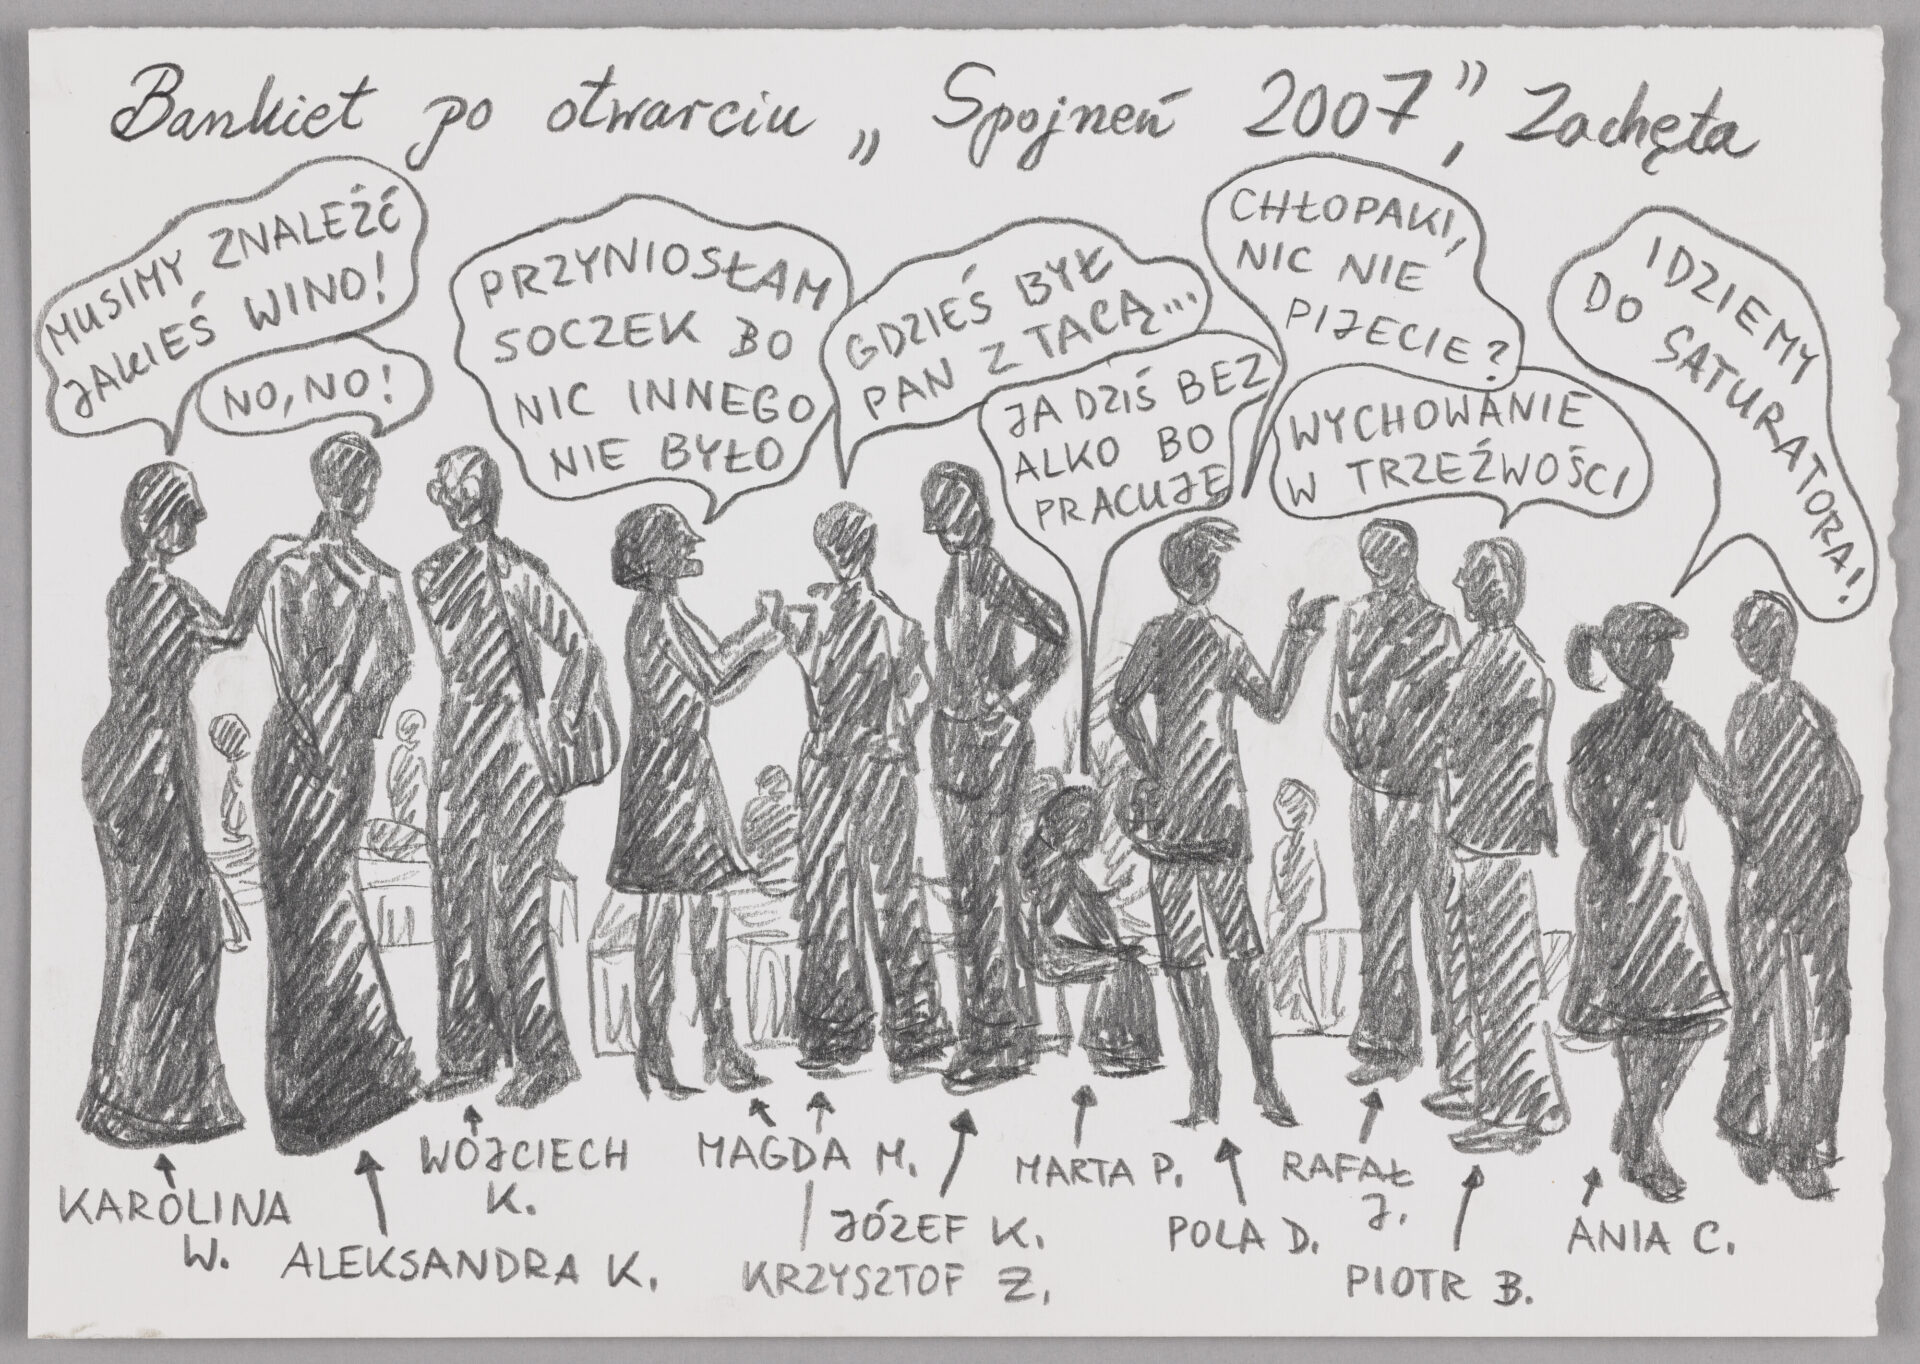 Bankiet po otwarciu „Spojrzeń 2007”, Zachęta
MUSIMY ZNALEŹĆ
JAKIEŚ WINO!
NO, NO!
PRZYNIOSŁAM
SOCZEK BO
NIC INNEGO
NIE BYŁO
GDZIEŚ BYŁ
PAN Z TACĄ...
JA DZIŚ BEZ
ALKO BO
PRACUJĘ
CHŁOPAKI,
NIC NIE
PIJECIE?
WYCHOWANIE
W TRZEŹWOŚCI
IDZIEMY
DO SATURATORA!
KAROLINA
W.
ALEKSANDRA K.
WOJCIECH
K.
MAGDA M.
KRZYSZTOF Z.
JÓZEF K.
MARTA P.
POLA D.
RAFAŁ
J.
PIOTR B.
ANIA C.